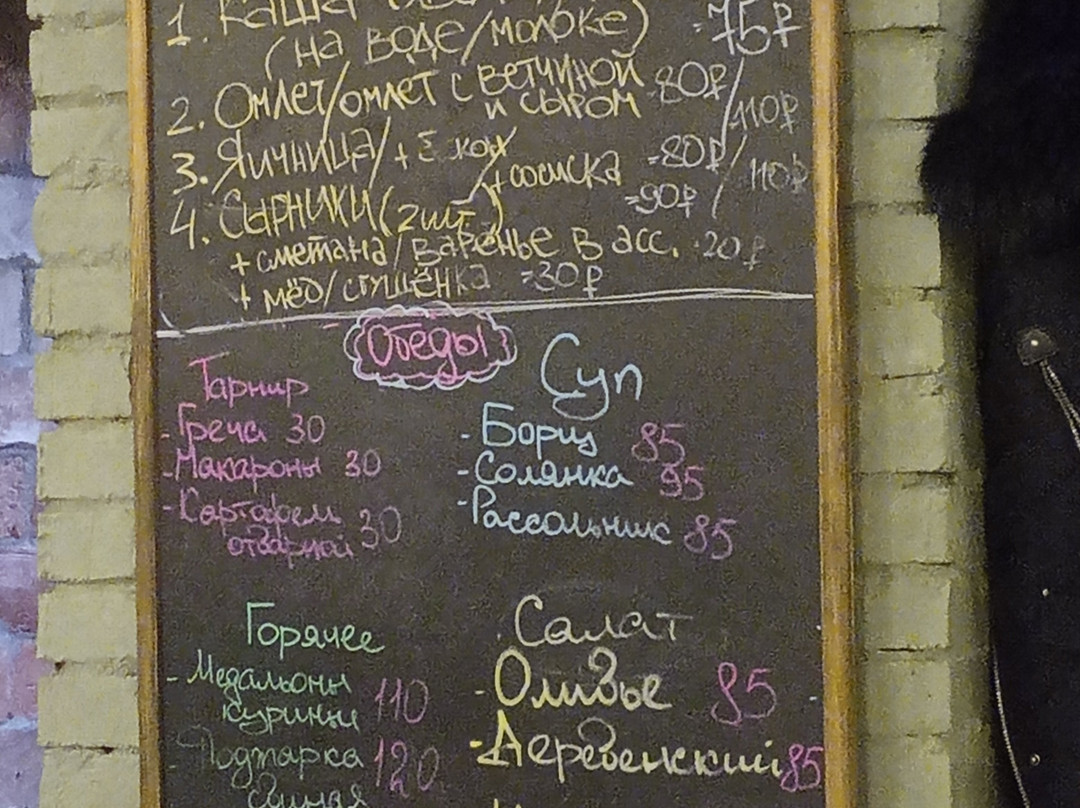 1. Каша -75₽
(на воде/молоке)
2. Омлет/омлет с ветчиной
и сыром -80₽/110₽
3. Яичница/+ -80₽/110₽
+сосиска
4. Сырники(2шт.) =90₽/
+ сметана/варенье в асс. -20₽
+ мёд/сгущёнка =30₽
Обеды!
Гарнир
- Греча 30
- Макароны 30
- Картофель
отварной 30
Суп
- Борщ 85
- Солянка 95
- Рассольник 85
Горячее
- Медальоны
куриные 110
- Поджарка 120
свиная
Салат
- Оливье 85
- Деревенский 85